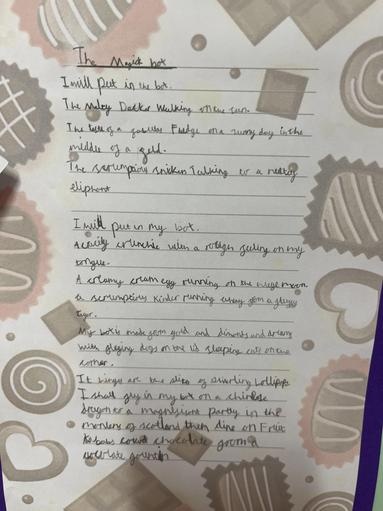 The Magick box
I will put in the box.
The Malty Decker Walking on the sun.
The taste of a fabulos Fudge on a sunny day in the
middle of a feild.
The scrumptious snickers Talking to a
elephant
I will put in my box.
A crunchie with a rough feeling on my
tongue.
A creamy cream egg running on the huge moon
a scrumptious Kinder running away from a
tiger.
My box is made from gold and dimonds and
with dogs on the lid sleeping cats on the
corner.
It hinges are the of swirling Lollipops
I shall fly in my box on a chinese
dragon to a magnificent party in the
of scotland then dine on Fruit
Kebabs chocolate from a